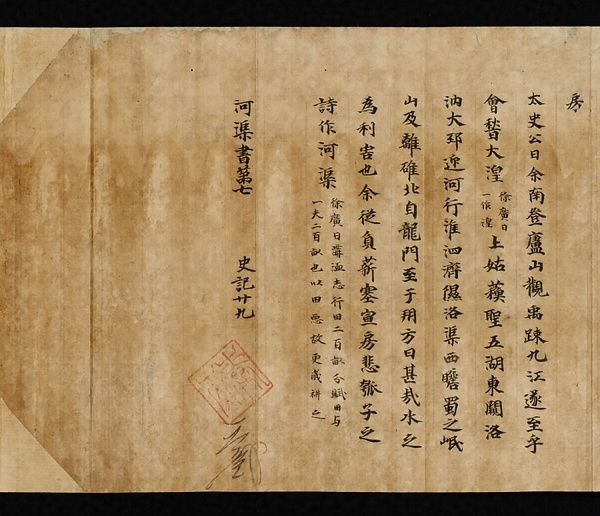 房
太史公曰余南登廬山觀禹疎九江遂至乎
會嵇大湟徐廣曰一作湟上姑蘓望五湖東闚洛
汭大邳迎河行淮泗濟濕洛渠西瞻蜀之岷
山及離碓北自龍門至于朔方曰甚哉水之
為利害也余從負薪塞宣房悲瓠子之
詩作河渠徐廣曰溝洫志行田二百畝分賦田与一夫二百畝也以田惡故更歲耕之
河渠書第七 史記廿九